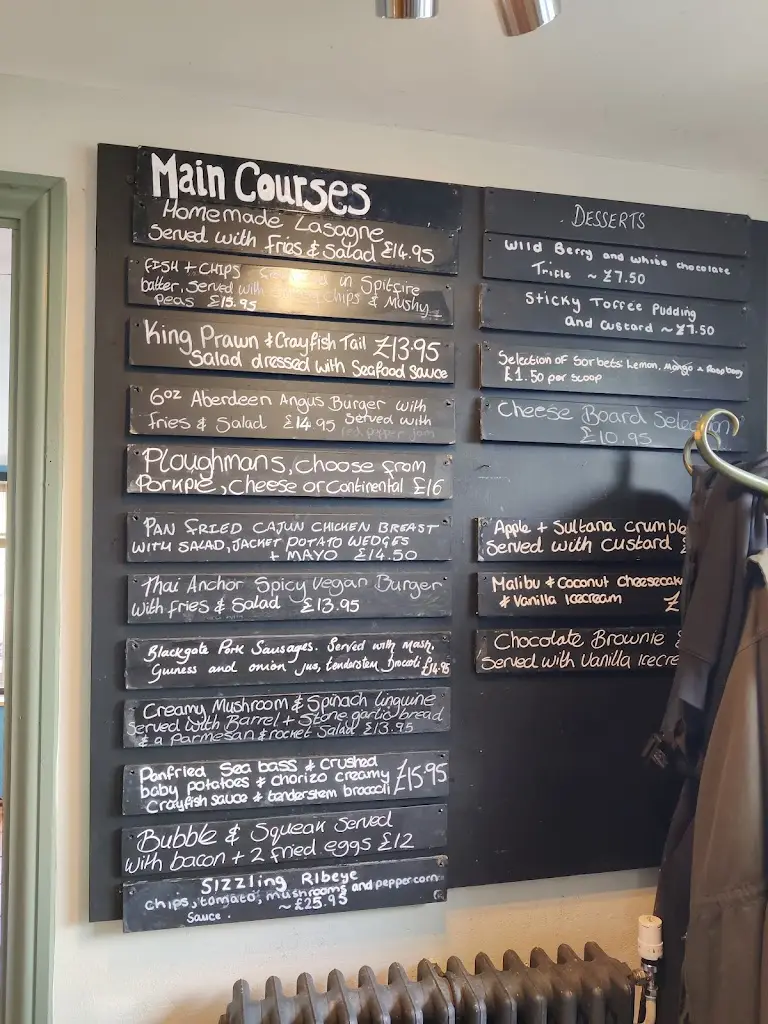 Main Courses
Homemade Lasagne
Served with fries & Salad £14.95
FISH + CHIPS in Spitfire
batter, served chips & Mushy
Peas £15.95
King Prawn & Crayfish Tail £13.95
Salad dressed with Seafood sauce
6oz Aberdeen Angus Burger with
fries & Salad £14.95 served with
red pepper jam
Ploughmans, choose from
Porkpie, cheese or continental £16
PAN FRIED CAJUN CHICKEN BREAST
WITH SALAD, JACKET POTATO WEDGES
+ MAYO £14.50
Thai Anchor Spicy Vegan Burger
with fries & Salad £13.95
Blackgate Pork Sausages. Served with Mash,
Guiness and onion jus, tenderstem brocoli £14.95
Creamy Mushroom & Spinach linguine
Served with Barrel + Stone garlic bread
& a parmesan & rocket Salad £13.95
Panfried Sea bass & crushed
baby potatoes & chorizo creamy £15.95
Crayfish sauce & tenderstem brocoli
Bubble & Squeak served
with bacon + 2 fried eggs £12
SIZZLING Ribeye
chips, tomato, mushrooms and peppercorn
~£25.95
Sauce.
DESSERTS
Wild Berry and white chocolate
Trifle ~ £7.50
Sticky Toffee Pudding
and custard ~ £7.50
Selection of Sorbets: Lemon, Mango & Raspberry
£1.50 per scoop
Cheese Board Selection
£10.95
Apple + Sultana crumble
Served with custard £
Malibu & Coconut cheesecake
& Vanilla Icecream £
Chocolate Brownie
Served with Vanilla Icecre